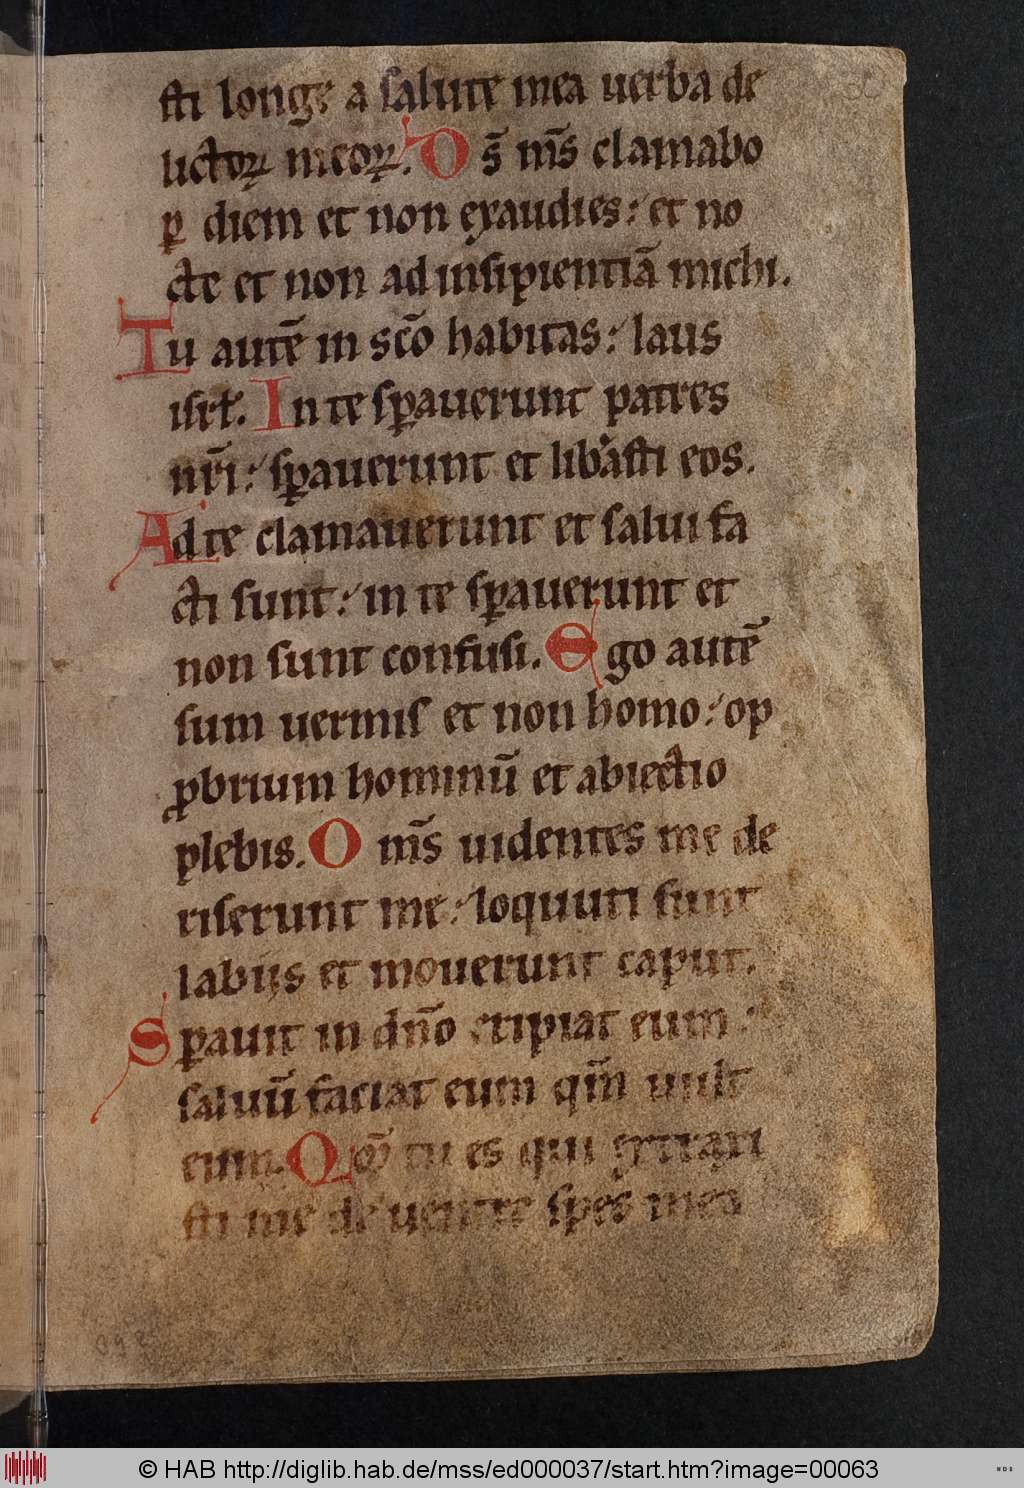 sti longe a salute mea uerba de
lictoꝝ meoꝝ. Os̄ ms̄ clamabo
ꝑ diem et non exaudies: et no
cte et non ad insipientiā michi.
Tu autē in scō habitas: laus
isrł. In te sꝑauerunt patres
nr̄i: sꝑauerunt et libasti eos.
Ad te clamauerunt et salui fa
cti sunt: in te sꝑauerunt et
non sunt confusi. Ego autē
sum uermis et non homo: op
ꝓbrium hominū et abiectio
plebis. Oms̄ uidentes me de
riserunt me: loquuti sunt
labijs et mouerunt caput.
Sꝑauit in dn̄o eripiat eum:
saluū faciat eum qm̄ uult
eum. Qm̄ tu es qui extraxi
sti me de uentre spes mea
© HAB http://diglib.hab.de/mss/ed000037/start.htm?image=00063